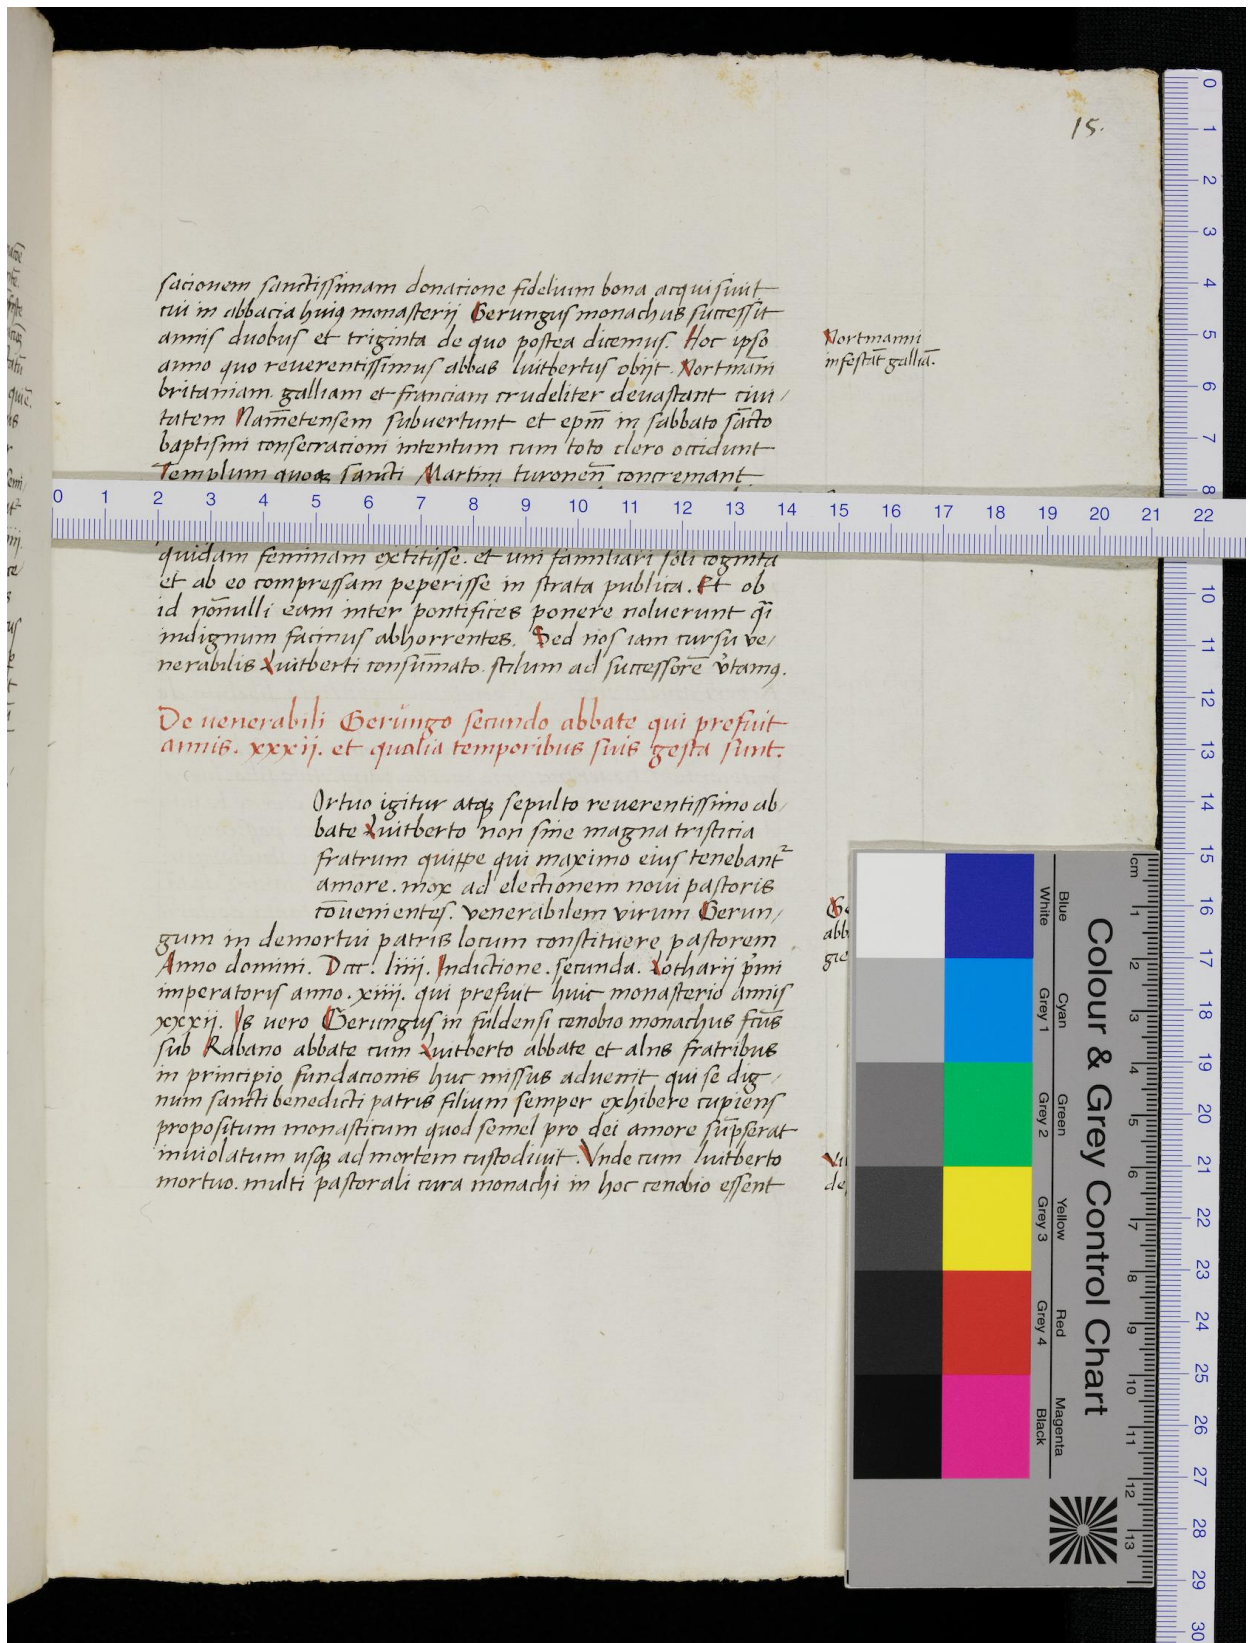 15.
sacionem sanctissimam donacione fidelium bona acquisiuit
cui in abbacia huiꝰ monasterij Gerungus monachus successit
annis duobus et triginta de quo postea dicemus. Hoc ipso
anno quo reuerentissimus abbas luitbertus obijt. Nortmāni
britaniam galliam et franciam crudeliter deuastant ciui/
tatem Nam̄etensem subuertunt et epm̄ in sabbato sācto
baptismi consecracioni intentum cum toto clero occidunt
Templum quoqꝫ sancti Martini turonen̄ concremant
Nortmanni
infestāt galliā.
quidam feminam extitisse. et uni familiari soli cognita
et ab eo compressam peperisse in strata publica. Et ob
id nōnulli eam inter pontifices ponere noluerunt qī
indignum facinus abhorrentes. Sed nos iam cursu ve/
nerabilis Luitberti consum̄ato stilum ad successorē v̓tamꝰ.
De uenerabili Gerŭngo secundo abbate qui prefuit
annis. xxxij. et qualia temporibus suis gesta sunt.
Ortuo igitur atqꝫ sepulto reuerentissimo ab/
bate Luitberto non sine magna tristicia
fratrum quippe qui maximo eius tenebant᷑
amore. mox ad electionem noui pastoris
cōuenientes. venerabilem virum Gerun/
gum in demortui patris locum constituere pastorem
Anno domini. Dccc. liiij. Indictione. secunda. Lotharij p̓mi
imperatoris anno. xiiij. qui prefuit huic monasterio annis
xxxij. Is vero Gerungus in fuldensi cenobio monachus fcūs
sub Rabano abbate cum Luitberto abbate et alijs fratribus
in principio fundacionis huc missus aduenit qui se dig/
num sancti benedicti patris filium semper exhibere cupiens
propositum monasticum quod semel pro dei amore sūpserat
inuiolatum usqꝫ ad mortem custodiuit. Vnde cum luitberto
mortuo. multi pastorali cura monachi in hoc cenobio essent
abb
0 1 2 3 4 5 6 7 8 9 10 11 12 13 14 15 16 17 18 19 20 21 22
0 1 2 3 4 5 6 7 8 10 11 12 13 14 15 16 17 18 19 20 21 22 23 24 25 26 27 28 29 30
Colour & Grey Control Chart
Blue Cyan Green Yellow Red Magenta
White Grey 1 Grey 2 Grey 3 Grey 4 Black
cm 1 2 3 4 5 6 7 8 9 10 11 12 13